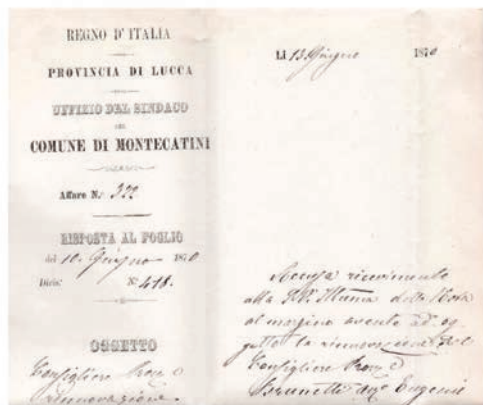 REGNO D'ITALIA
PROVINCIA DI LUCCA
UFFIZIO DEL SINDACO
DEL
COMUNE DI MONTECATINI
Affare N. 322
RISPOSTA AL FOGLIO
del 10 Giugno 1870
Divis. N. 418.
OGGETTO
Consigliere Prov.
rinnovazione.
Lì 13 Giugno 1870
Accusa ricevimento
alla S.V. Illma della Nota
al margine avente ad og
getto la rinnovazione del
Consigliere Prov.
Brunetti Eugenio